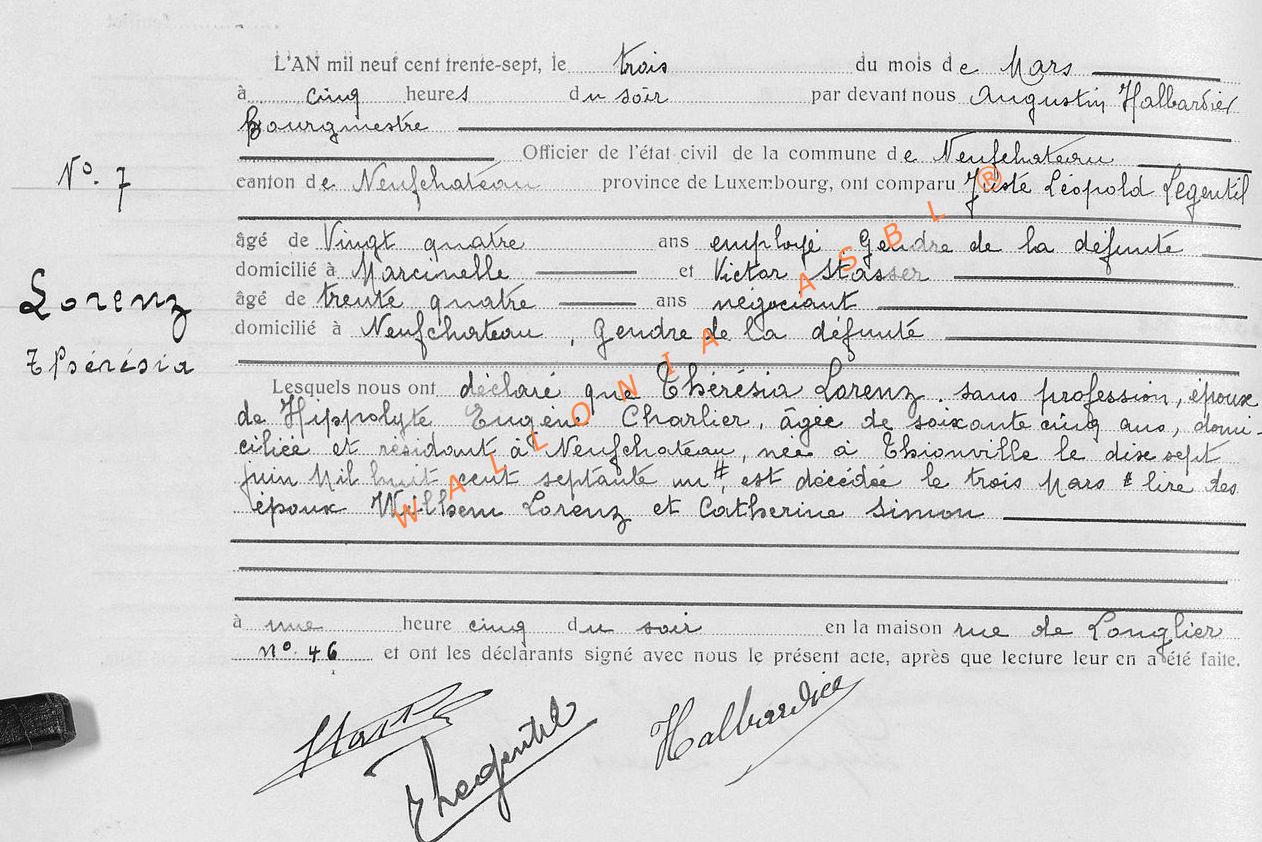 L'AN mil neuf cent trente-sept, le trois du mois de Mars
à cinq heures du soir par devant nous Augustin Halbardier
Bourgmestre
Officier de l'état civil de la commune de Neufchateau
N° 7
canton de Neufchateau province de Luxembourg, ont comparu Juste Léopold Legentil
âgé de Vingt quatre ans employé Gendre de la défunte
domicilié à Marcinelle et Victor Stasser
Lorenz
âgé de trente quatre ans négociant
domicilié à Neufchateau, Gendre de la défunte
Thérésia
Lesquels nous ont déclaré que Thérésia Lorenz, sans profession, épouse
de Hippolyte Eugène Charlier, âgée de soixante cinq ans, domi-
ciliée et résidant à Neufchateau, née à Thionville le dix sept
juin Mil huit cent septante un #, est décédée le trois Mars # lire des
époux Wilhem Lorenz et Catherine Simon
à une heure cinq du soir en la maison rue de Longlier
N° 46 et ont les déclarants signé avec nous le présent acte, après que lecture leur en a été faite.
Legentil
Halbardier
WALLONIA ASBL ®